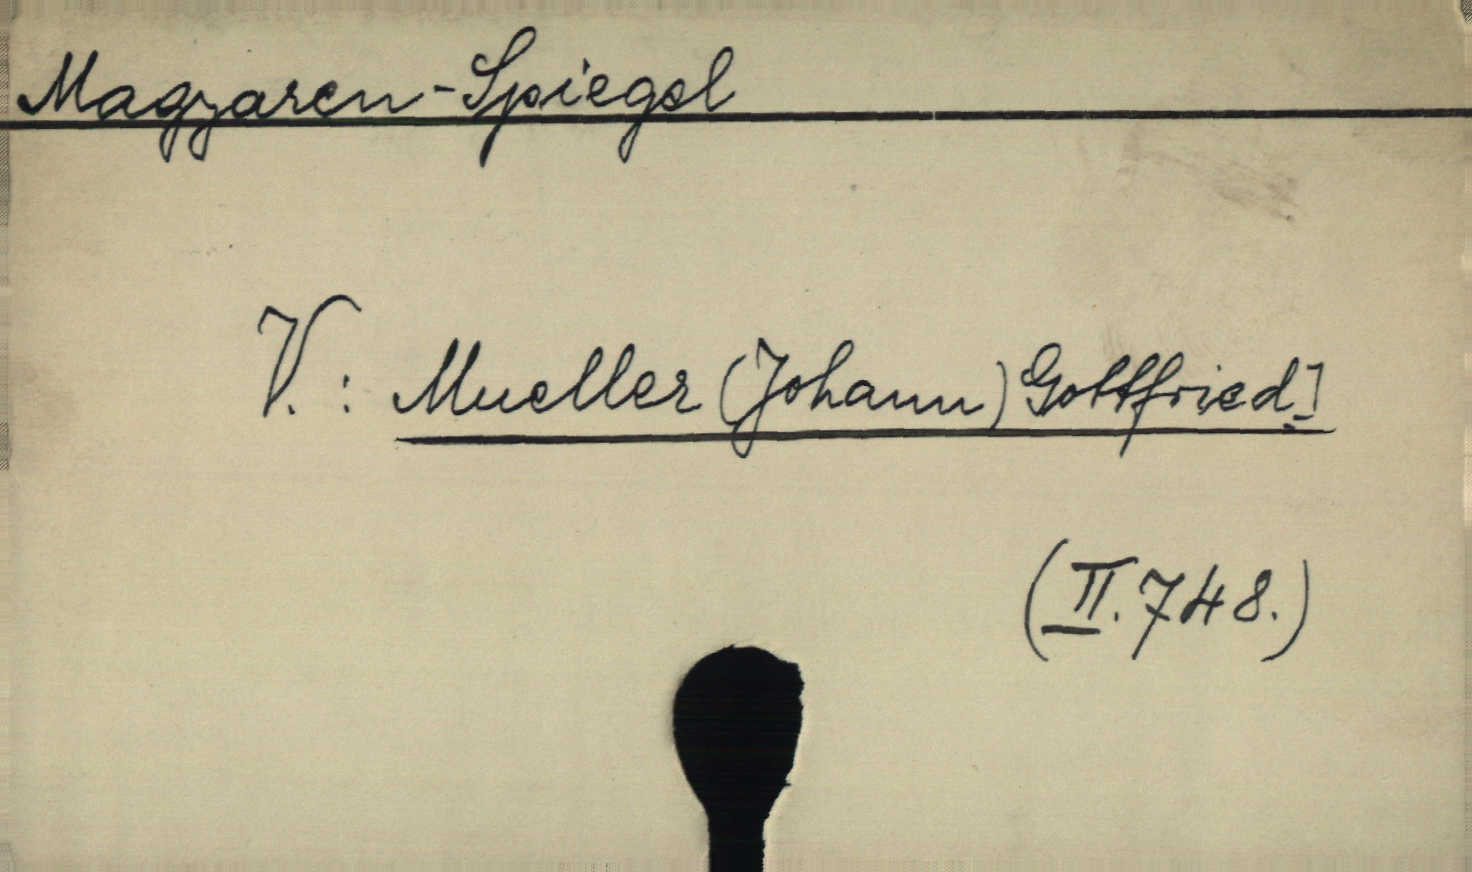 Magyaren-Spiegel
V.: Mueller (Johann) Gottfried]
(II.748.)